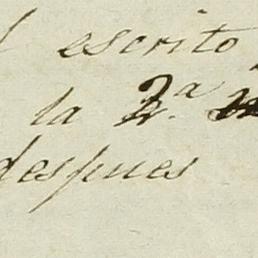 escrito
la 2.ª
despues